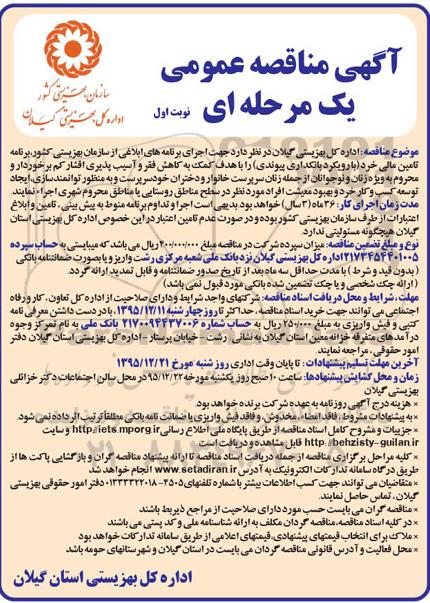 سازمان بهزیستی کشور
اداره کل بهزیستی گیلان
آگهی مناقصه عمومی
یک مرحله ای
نوبت اول
موضوع مناقصه: اداره کل بهزیستی گیلان در نظر دارد جهت اجرای برنامه های ابلاغی از سازمان بهزیستی کشور، برنامه
تامین مالی خرد (با رویکرد بانکداری پیوندی) را با هدف کمک به کاهش فقر و آسیب پذیری اقشار کم برخوردار و
محروم به ویژه زنان و نوجوانان از جمله زنان سرپرست خانوار و دختران خودسرپرست و به منظور توانمندسازی، ایجاد
توسعه کسب و کار خرد و بهبود معیشت افراد مورد نظر در سطح مناطق روستایی یا مناطق محروم شهری اجراء نمایند.
مدت زمان اجرای کار: ۳۶ ماه (۳ سال) خواهد بود. بدیهی است اجرا و تداوم برنامه منوط به پیش بینی، تامین و ابلاغ
اعتبارات از طرف سازمان بهزیستی کشور بوده و در صورت عدم تامین اعتبار در این خصوص اداره کل بهزیستی استان
گیلان هیچگونه مسئولیتی ندارد.
نوع و مبلغ تضمین مناقصه: میزان سپرده شرکت در مناقصه مبلغ ۲۰۰/۰۰۰/۰۰۰ ریال می باشد که میبایستی به حساب سپرده
۲۱۷۳۴۵۴۴۰۱۰۰۵ اداره کل بهزیستی گیلان نزد بانک ملی شعبه مرکزی رشت واریز و یا بصورت ضمانتنامه بانکی
(بدون قید و شرط) با مدت حداقل سه ماه بعد از تاریخ صدور ضمانتنامه و قابل تمدید ارائه گردد.
(ارائه چک شخصی و یا چک تضمین شده بانکی مورد قبول نمی باشد)
مهلت، شرایط و محل دریافت اسناد مناقصه: شرکتهای واجد شرایط و دارای صلاحیت از اداره کل تعاون، کار و رفاه
اجتماعی می توانند جهت خرید اسناد مناقصه، حداکثر تا روز چهار شنبه ۱۳۹۵/۱۲/۱۱، با در دست داشتن معرفی نامه
کتبی و فیش واریزی به مبلغ ۲۵۰/۰۰۰ ریال به حساب شماره ۲۱۷۰۰۹۴۴۳۷۰۰۶ بانک ملی به نام تمرکز وجوه
درآمدهای متفرقه خزانه معین استان گیلان به نشانی: رشت - خیابان پرستار - اداره کل بهزیستی استان گیلان دفتر
امور حقوقی، مراجعه نمایند.
آخرین مهلت تسلیم پیشنهادات: تا پایان وقت اداری روز شنبه مورخ ۱۳۹۵/۱۲/۲۱
زمان و محل گشایش پیشنهادها: ساعت ۱۰ صبح روز یکشنبه مورخه ۹۵/۱۲/۲۲ در محل سالن اجتماعات دکتر خزائلی
بهزیستی گیلان
× هزینه درج آگهی روزنامه به عهده شرکت برنده خواهد بود.
× به پیشنهادات مشروط، فاقد امضاء، مخدوش و فاقد فیش واریزی یا ضمانت نامه بانکی مطلقا ترتیب اثر داده نمی شود.
× جزییات و مشروح کامل اسناد مناقصه از طریق پایگاه ملی اطلاع رسانی http://iets.mporg.ir و سایت
http://behzisty-guilan.ir قابل مشاهده و دریافت است
× کلیه مراحل برگزاری مناقصه از جمله دریافت اسناد مناقصه تا ارائه پیشنهاد مناقصه گران و بازگشایی پاکت ها از
طریق درگاه سامانه تدارکات الکترونیک به آدرس www.setadiran.ir انجام خواهد شد
× متقاضیان می توانند جهت کسب اطلاعات بیشتر با شماره تلفنهای ۴۵۰۵-۰۱۳۳۳۳۲۲۰۱۸ دفتر امور حقوقی بهزیستی
گیلان، تماس حاصل نمایند.
× مناقصه گران می بایست حسب مورد دارای صلاحیت از مراجع ذیربط باشند
× در کلیه اسناد مناقصه، مناقصه گردان مکلف به ارائه شناسامه ملی و کد پستی می باشند
× ملاک برای انتخاب قیمتهای پیشنهادی، قیمتهای اعلامی از طریق سامانه تدارکات خواهد بود
× محل فعالیت و آدرس قانونی مناقصه گردان می بایست در استان گیلان و شهرستانهای حومه باشد
اداره کل بهزیستی استان گیلان